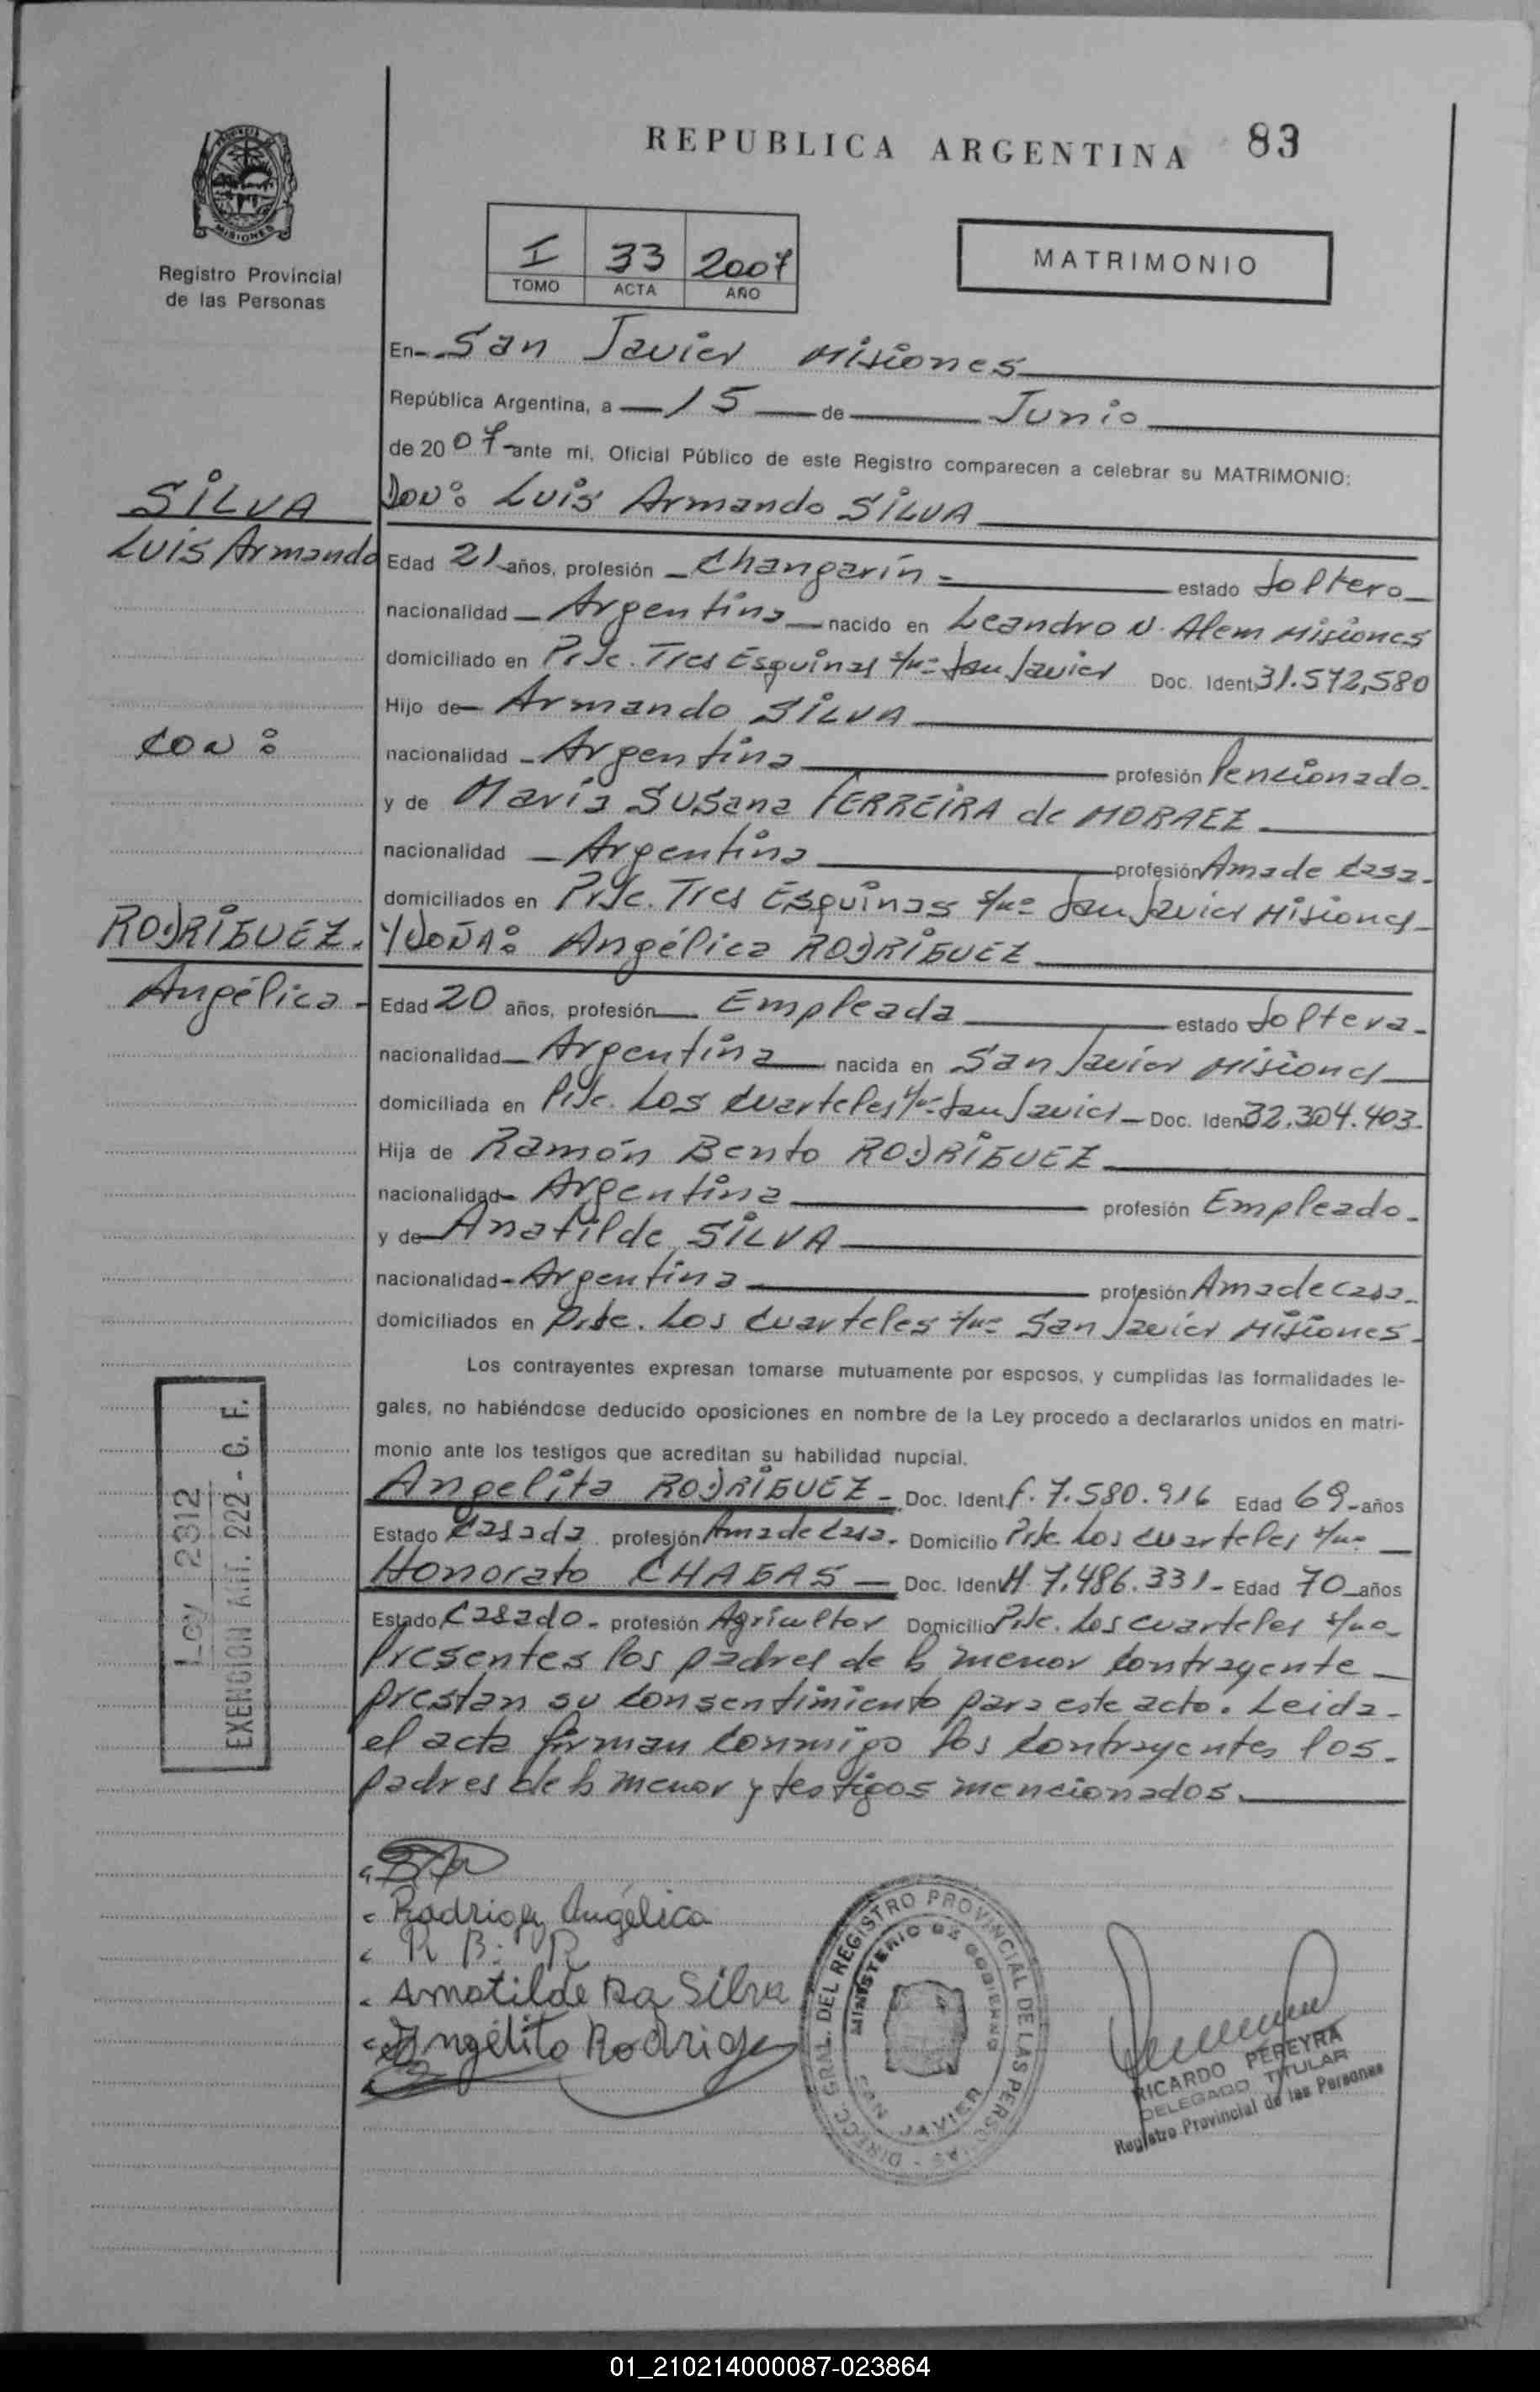 REPUBLICA ARGENTINA 83
MISIONES
Registro Provincial
de las Personas
I 33 2007
TOMO ACTA AÑO
MATRIMONIO
En San Javier Misiones
República Argentina, a 15 de Junio
de 2007 ante mi, Oficial Público de este Registro comparecen a celebrar su MATRIMONIO:
SILVA
Luis Armando
DON: Luis Armando SILVA
Edad 21 años, profesión Changarín estado Soltero
nacionalidad Argentina nacido en Leandro N. Alem Misiones
domiciliado en Pje. Tres Esquinas s/nº San Javier Doc. Ident. 31.572,580
Hijo de Armando SILVA
CON:
nacionalidad Argentina profesión Pensionado
y de María Susana FERREIRA de MORAEZ
nacionalidad Argentina profesión Ama de Casa
domiciliados en Pje. Tres Esquinas s/nº San Javier Misiones
RODRIGUEZ.
Angélica
Y DOÑA: Angélica RODRIGUEZ
Edad 20 años, profesión Empleada estado Soltera
nacionalidad Argentina nacida en San Javier Misiones
domiciliada en Pje. Los Cuarteles s/nº San Javier Doc. Iden 32.304.403
Hija de Ramón Bento RODRIGUEZ
nacionalidad Argentina profesión Empleado
y de Anatilde SILVA
nacionalidad Argentina profesión Ama de casa
domiciliados en Pje. Los Cuarteles s/nº San Javier Misiones
Los contrayentes expresan tomarse mutuamente por esposos, y cumplidas las formalidades le-
gales, no habiéndose deducido oposiciones en nombre de la Ley procedo a declararlos unidos en matri-
monio ante los testigos que acreditan su habilidad nupcial.
Angelita RODRIGUEZ Doc. Ident. f. 7.580.916 Edad 69 años
Estado Casada profesión Ama de Casa. Domicilio Pje. Los Cuarteles s/nº
Honorato CHAGAS Doc. Iden M 7.486.331 Edad 70 años
Estado Casado profesión Agricultor Domicilio Pje. Los Cuarteles s/nº
Presentes los padres de la menor contrayente
prestan su consentimiento para este acto. Leida
el acta firman conmigo los contrayentes los
padres de la menor y testigos mencionados.
Ley 2312
EXENCION ART. 222 - C. F.
Rodriguez Angélica
R B. R
Amatilde Da Silva
Angélita Rodriguez
DIRECC. GRAL. DEL REGISTRO PROVINCIAL DE LAS PERSONAS
MINISTERIO DE GOBIERNO
SAN JAVIER
RICARDO PEREYRA
DELEGADO TITULAR
Registro Provincial de las Personas
01_210214000087-023864